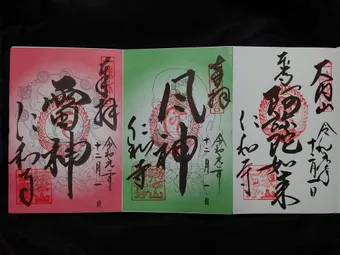 大内山
令和元年
十二月一日
阿弥陀如来
仁和寺
奉拝
令和元年
十二月一日
風神
仁和寺
奉拝
令和元年
十二月一日
雷神
仁和寺